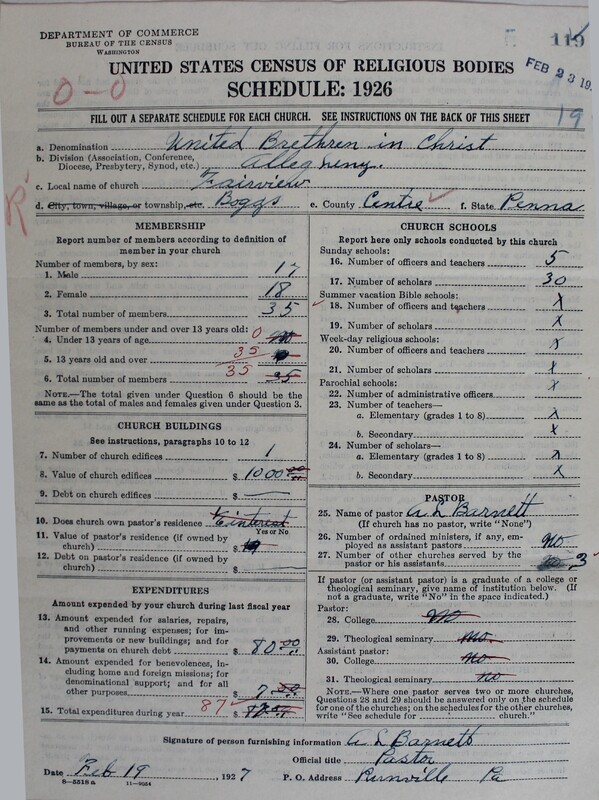 DEPARTMENT OF COMMERCE
BUREAU OF THE CENSUS
WASHINGTON
FEB 23 19
UNITED STATES CENSUS OF RELIGIOUS BODIES
SCHEDULE: 1926
0-0
FILL OUT A SEPARATE SCHEDULE FOR EACH CHURCH. SEE INSTRUCTIONS ON THE BACK OF THIS SHEET
19
a. Denomination United Brethren in Christ
b. Division (Association, Conference, Diocese, Presbytery, Synod, etc.) Allegheny.
c. Local name of church Fairview
d. City, town, village, or township, etc. Boggs e. County Centre f. State Penna
MEMBERSHIP
Report number of members according to definition of
member in your church
Number of members, by sex:
1. Male 17
2. Female 18
3. Total number of members 35
Number of members under and over 13 years old:
4. Under 13 years of age 0
5. 13 years old and over 35
6. Total number of members 35 35
NOTE.—The total given under Question 6 should be
the same as the total of males and females given under Question 3.
CHURCH BUILDINGS
See instructions, paragraphs 10 to 12
7. Number of church edifices 1
8. Value of church edifices $ 1000.00
9. Debt on church edifices $ —
10. Does church own pastor's residence 1/6 interest
Yes or No
11. Value of pastor's residence (if owned by
church) $
12. Debt on pastor's residence (if owned by
church) $
EXPENDITURES
Amount expended by your church during last fiscal year
13. Amount expended for salaries, repairs,
and other running expenses; for im-
provements or new buildings; and for
payments on church debt $ 80.00
14. Amount expended for benevolences,
including home and foreign missions; for
denominational support; and for all
other purposes $ 7.00
15. Total expenditures during year 87 $
CHURCH SCHOOLS
Report here only schools conducted by this church
Sunday schools:
16. Number of officers and teachers 5
17. Number of scholars 30
Summer vacation Bible schools:
18. Number of officers and teachers X
19. Number of scholars X
Week-day religious schools:
20. Number of officers and teachers X
21. Number of scholars X
Parochial schools:
22. Number of administrative officers X
23. Number of teachers—
a. Elementary (grades 1 to 8) X
b. Secondary X
24. Number of scholars—
a. Elementary (grades 1 to 8) X
b. Secondary X
PASTOR
25. Name of pastor A L Barnett
(If church has no pastor, write "None")
26. Number of ordained ministers, if any, em-
ployed as assistant pastors no
27. Number of other churches served by the
pastor or his assistants 3
If pastor (or assistant pastor) is a graduate of a college or
theological seminary, give name of institution below. (If
not a graduate, write "No" in the space indicated.)
Pastor:
28. College No
29. Theological seminary No.
Assistant pastor:
30. College No
31. Theological seminary no
NOTE.—Where one pastor serves two or more churches,
Questions 28 and 29 should be answered only on the schedule
for one of the churches; on the schedules for the other churches,
write "See schedule for church."
Signature of person furnishing information A L Barnett
Official title Pastor
Date Feb 19, 1927 P. O. Address Runville Pa
8-5518 a 11-9054